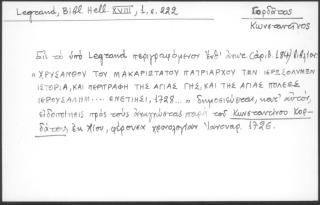 Legrand, Bibl Hell. XVIII, 1, σ. 222
Γορδάτος
Κωνσταντῖνος
Εἰς τὸ ὑπὸ Legrand περιγραφόμενον (ἀρ. 184) βιβλίον
"ΧΡΥΣΑΝΘΟΥ ΤΟΥ ΜΑΚΑΡΙΩΤΑΤΟΥ ΠΑΤΡΙΑΡΧΟΥ ΤΩΝ ΙΕΡΟΣΟΛΥΜΩΝ
ΙΣΤΟΡΙΑ, ΚΑΙ ΠΕΡΙΓΡΑΦΗ ΤΗΣ ΑΓΙΑΣ ΓΗΣ, ΚΑΙ ΤΗΣ ΑΓΙΑΣ ΠΟΛΕΩΣ
ΙΕΡΟΥΣΑΛΗΜ ... ΕΝΕΤΙΗΣΙ, 1728..." δημοσιεύεται, κατ' αὐτόν,
εἰδοποίησις πρὸς τοὺς ἀναγνώστας παρὰ τοῦ Κωνσταντίνου Κορ-
δάτου ἐκ Χίου, φέρουσα χρονολογίαν Ἰανουαρ. 1726.